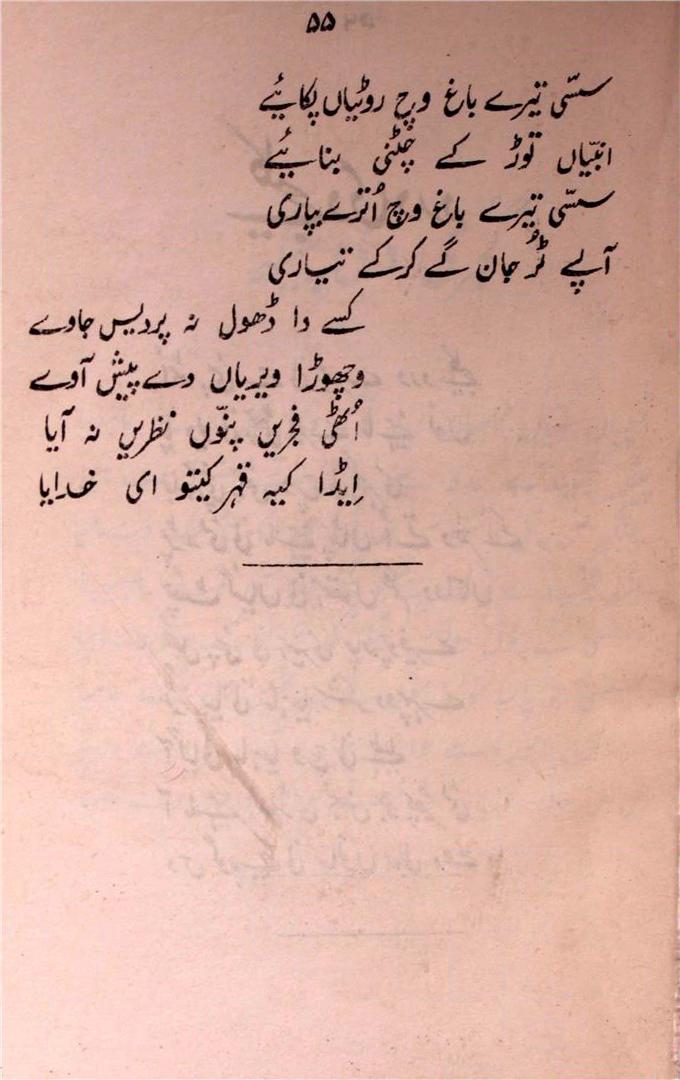 ۵۵
سسّی تیرے باغ وچ روٹیاں پکائیے
انبیّاں توڑ کے چٹنی بنائیے
سسّی تیرے باغ وچ اُترے بپاری
آپے ٹُر جان گے کرکے تیاری
کسے دا ڈھول نہ پردیس جاوے
وچھوڑا ویریاں دے پیش آوے
اُٹھی فجریں پنّوں نظریں نہ آیا
اِیڈا کیہ قہر کیتو ای خدایا